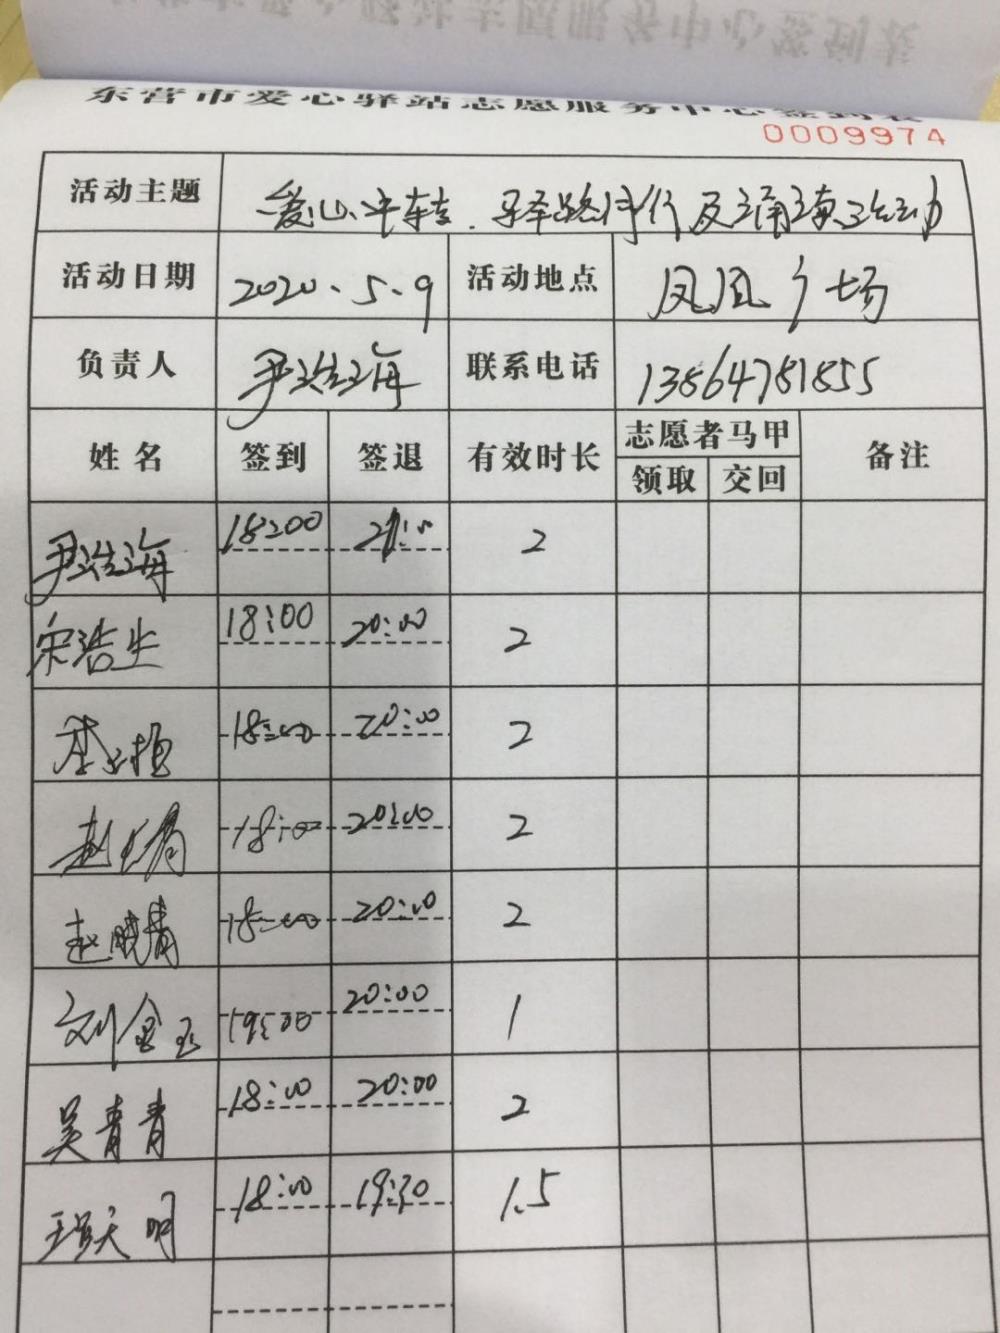 东营市爱心驿站志愿服务中心签到表
0009974
活动主题
活动日期 2020.5.9 活动地点 凤凰广场
负责人 尹浩海 联系电话 13864781855
姓名 签到 签退 有效时长 志愿者马甲 备注
领取 交回
尹浩海 18:00 2
宋浩生 18:00 20:00 2
18:00 20:00 2
赵 18:00 20:00 2
赵晓青 18:00 20:00 2
刘金玉 19:00 20:00 1
吴青青 18:00 20:00 2
天明 18:00 19:30 1.5